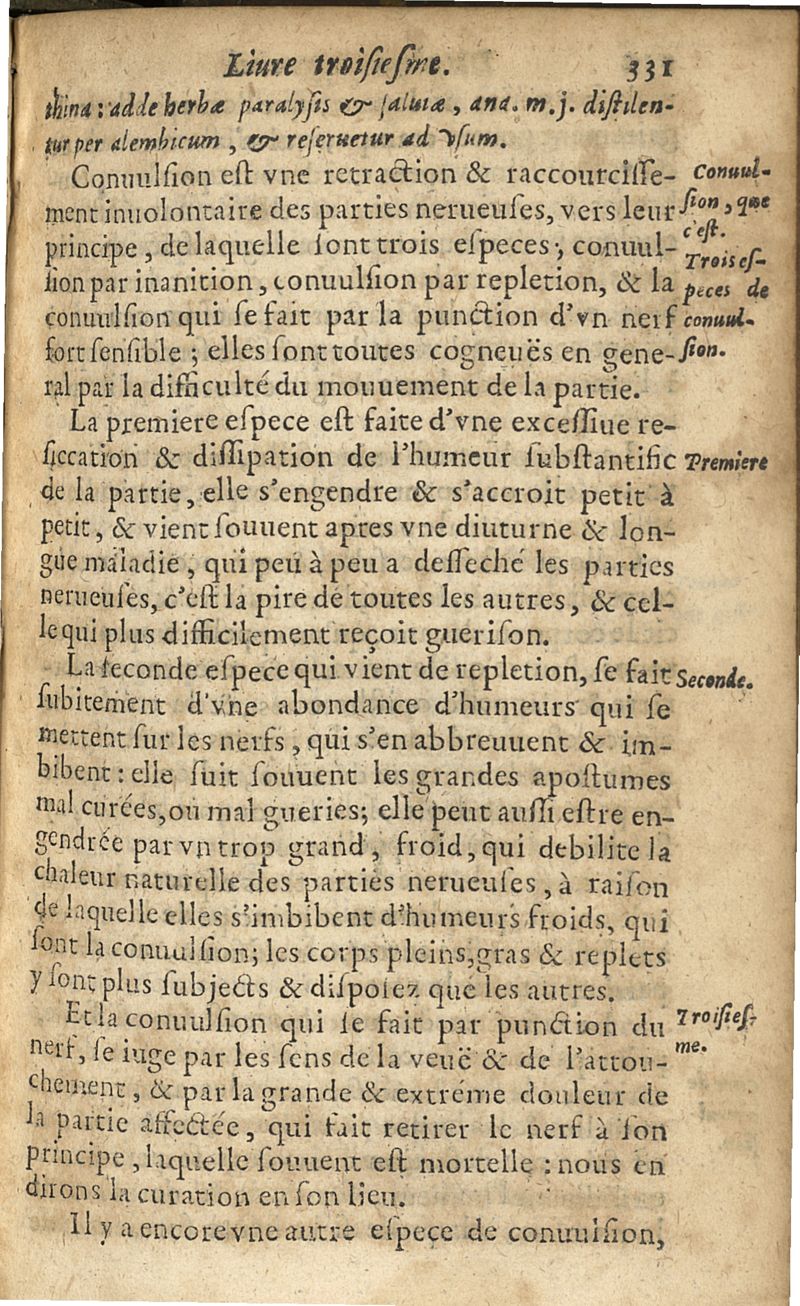 Liure troisiesme. 331
thina: adde herbæ paralysis & saluiæ, ana. m. j. distilen-
tur per alembicum, & reseruetur ad vsum.
Conuulsion est vne retraction & raccourcisse-
ment inuolontaire des parties nerueuses, vers leur
principe, de laquelle sont trois especes, conuul-
sion par inanition, conuulsion par repletion, & la
conuulsion qui se fait par la punction d'vn nerf
fort sensible ; elles sont toutes cogneuës en gene-
ral par la difficulté du mouuement de la partie.
Conuul-
sion, que
c'est.
Trois es-
peces de
conuul-
sion.
La premiere espece est faite d'vne excessiue re-
siccation & dissipation de l'humeur substantific
de la partie, elle s'engendre & s'accroit petit à
petit, & vient souuent apres vne diuturne & lon-
gue maladie, qui peu à peu a desseché les parties
nerueuses, c'est la pire de toutes les autres, & cel-
le qui plus difficilement reçoit guerison.
Premiere
La seconde espece qui vient de repletion, se fait
subitement d'vne abondance d'humeurs qui se
mettent sur les nerfs, qui s'en abbreuuent & im-
bibent : elle suit souuent les grandes apostumes
mal curées, ou mal gueries; elle peut aussi estre en-
gendrée par vn trop grand, froid, qui debilite la
chaleur naturelle des parties nerueuses, à raison
de laquelle elles s'imbibent d'humeurs froids, qui
font la conuulsion; les corps pleins, gras & replets
y sont plus subjects & disposez que les autres.
Seconde.
Et la conuulsion qui se fait par punction du
nerf, se iuge par les sens de la veuë & de l'attou-
chement, & par la grande & extréme douleur de
la partie affectée, qui fait retirer le nerf à son
principe, laquelle souuent est mortelle : nous en
dirons la curation en son lieu.
Troisies-
me.
Il y a encore vne autre espece de conuulsion,